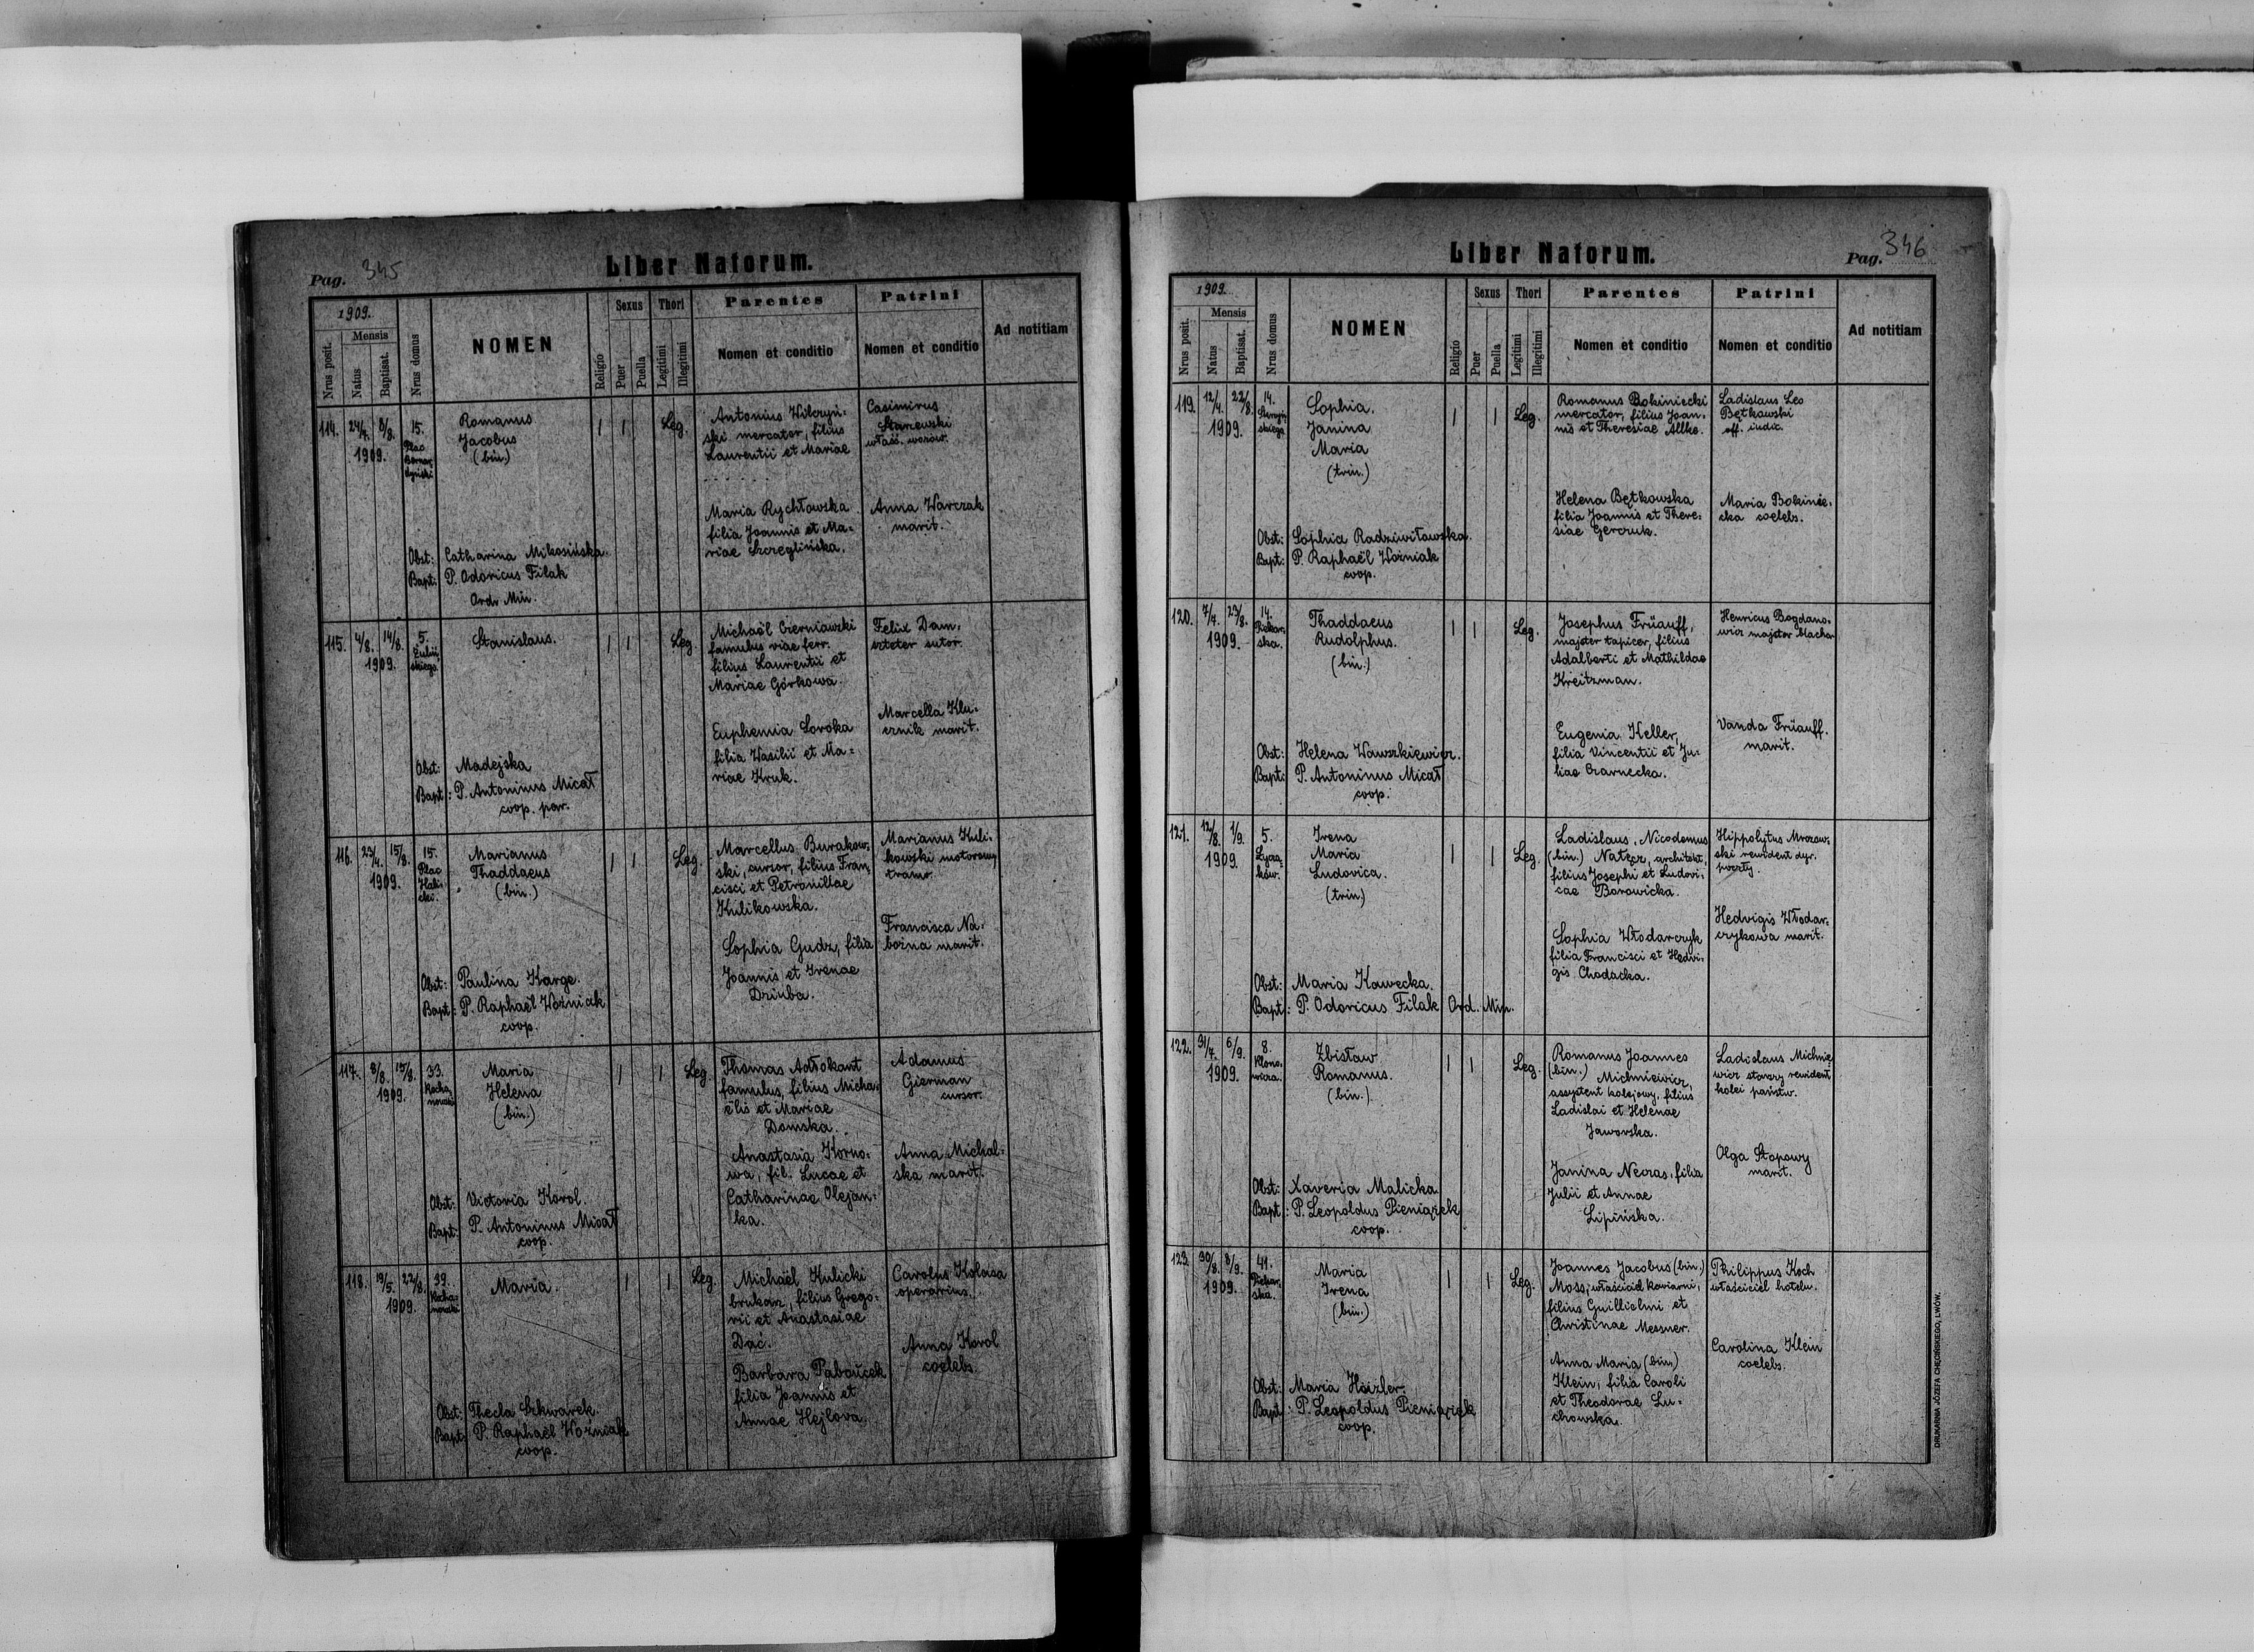 Pag. 345
Liber Natorum.
1909.
Nrus posit.
Mensis
Natus
Baptisat.
Nrus domus
NOMEN
Religio
Sexus
Puer
Puella
Thori
Legitimi
Illegitimi
Parentes
Nomen et conditio
Patrini
Nomen et conditio
Ad notitiam
114.
24/7. 8/8.
1909.
15.
Plac
Bernar-
dyński
Romanus
Jacobus
(bin.)
Obst: Catharina Mikosińska.
Bapt: P. Odoricus Filak
Ord. Min.
1 1 Leg.
Antonius Wilczyń-
ski mercator, filius
Laurentii et Mariae
. . . . . .
Maria Rychtowska
filia Joannis et Ma-
riae Szczeglińska.
Casimirus
Starzewski
właśc. wozów.
Anna Warczak
marit.
115.
4/8. 14/8.
1909.
5.
Zuliń-
skiego
Stanislaus.
Obst: Madejska
Bapt: P. Antoninus Micał
coop. par.
1 1 Leg.
Michaël Czerniawski
famulus viae ferr.
filius Laurentii et
Mariae Górkowa.
Euphemia Soroka
filia Wasilii et Ma-
riae Kruk.
Felix Dam.
szteter sutor.
Marcella Klu-
cznik marit.
116.
23/4. 15/8.
1909.
15.
Plac
Hali-
cki.
Marianus
Thaddaeus
(bin.)
Obst: Paulina Karge.
Bapt: P. Raphaël Woźniak
coop.
1 1 Leg.
Marcellus Burakow-
ski, cursor, filius Fran-
cisci et Petronillae
Kulikowska.
Sophia Gudz, filia
Joannis et Irenae
Dziuba.
Marianus Kuli-
kowski motorowy
tramw.
Francisca Na-
bożna marit.
117.
8/8. 15/8.
1909.
33.
Kocha-
nowski
Maria
Helena
(bin.)
Obst: Victoria Korol.
Bapt: P. Antoninus Micał
coop.
1 1 Leg
Thomas Adwokant
famulus, filius Micha-
ëlis et Mariae
Domska.
Anastasia Korno-
wa, fil. Lucae et
Catharinae Olejan-
ka.
Adamus
Gierman
cursor.
Anna Michal-
ska marit.
118.
19/5. 22/8.
1909.
39.
Kocha-
nowski
Maria.
Obst: Thecla Szkwarek.
Bapt: P. Raphaël Woźniak
coop.
1 1 Leg.
Michaël Kulicki
brukarz, filius Grego-
rii et Anastasiae
Dać.
Barbara Pabouček
filia Joannis et
Annae Hejlova.
Carolus Kolasa
operarius.
Anna Korol
coelebs.
Liber Natorum.
Pag. 346
1909.
Nrus posit.
Mensis
Natus
Baptisat.
Nrus domus
NOMEN
Religio
Sexus
Puer
Puella
Thori
Legitimi
Illegitimi
Parentes
Nomen et conditio
Patrini
Nomen et conditio
Ad notitiam
119.
12/4. 22/8.
1909.
14.
skiego
Sophia.
Janina
Maria
(trin.)
Obst: Sophia Radziwiławska.
Bapt: P. Raphaël Woźniak
coop.
1 1 Leg.
Romanus Bokiniecki
mercator, filius Joan-
nis et Theresiae Allke.
Helena Bętkowska
filia Joannis et There-
siae Gerczuk.
Ladislaus Leo
Bętkowski
off. iudic.
Maria Bokinie-
cka coelebs.
120.
7/7. 23/8.
1909.
14.
Piekar-
ska.
Thaddaeus
Rudolphus.
(bin.)
Obst: Helena Wawszkiewicz.
Bapt: P. Antoninus Micał
coop.
1 1 Leg.
Josephus Früauff,
majster tapicer, filius
Adalberti et Mathildae
Kreitzman.
Eugenia Keller,
filia Vincentii et Ju-
liae Czarnecka.
Henricus Bogdano-
wicz majster blachar.
Vanda Früauff.
marit.
121.
12/8. 1/9.
1909.
5.
Łycza-
ków.
Irena
Maria
Ludovica.
(trin.)
Obst: Maria Kawecka.
Bapt: P. Odoricus Filak Ord. Min.
1 1 Leg.
Ladislaus, Nicodemus
(bin.) Natecz, architekt,
filius Josephi et Ludovi-
cae Borowicka.
Sophia Włodarczyk
filia Francisci et Hedvi-
gis Chodacka.
Hippolytus Mrozow-
ski rewident dyr.
poczty.
Hedvigis Włodar-
czykowa marit.
122.
31/7. 6/9.
1909.
8.
Klono-
wicza.
Zbisław
Romanus.
(bin.)
Obst: Xaveria Malicka.
Bapt: P. Leopoldus Pieniążek
coop.
1 1 Leg.
Romanus Joannes
(bin.) Michniewicz,
assystent kolejowy, filius
Ladislai et Helenae
Jaworska.
Janina Neoras, filia
Julii et Annae
Lipińska.
Ladislaus Michnie-
wicz starszy rewident
kolei państw.
Olga Stopowy
marit.
123.
30/8. 8/9.
1909.
41.
Piekar-
ska.
Maria
Irena
(bin.)
Obst: Maria Haizler.
Bapt: P. Leopoldus Pieniążek
coop.
1 1 Leg.
Joannes Jacobus (bin.)
Moss, właściciel kawiarni,
filius Guillielmi et
Christinae Messner.
Anna Maria (bin.)
Klein, filia Caroli
et Theodorae Lu-
chowska.
Philippus Koch
właściciel hotelu.
Carolina Klein
coelebs.
DRUKARNIA JÓZEFA CHĘCIŃSKIEGO, LWÓW.